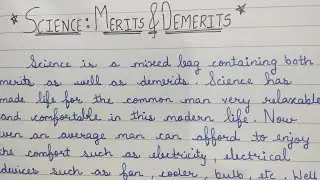 SCIENCE: MERITS & DEMERITS
Science is a mixed bag containing both
merits as well as demerits. Science has
made life for the common man very relaxable
and comfortable in this modern life. Now
even an average man can afford to enjoy
the comfort such as electricity, electrical
devices such as fan, cooler, bulb, etc. Well